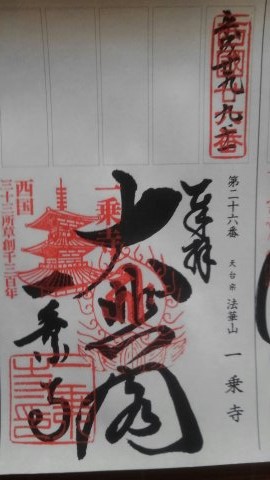 第二十六番 天台宗 法華山 一乗寺
奉拝
大悲閣
一乗寺
西国
三十三所草創千三百年